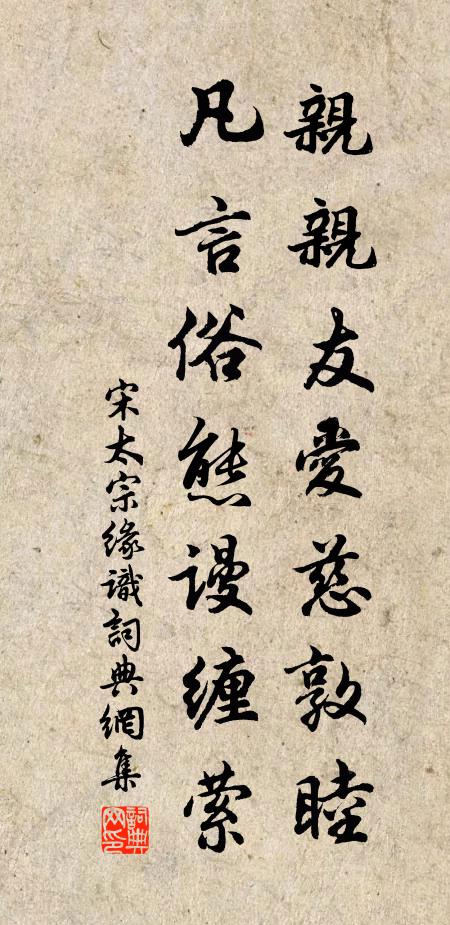 親親友愛慈敦睦
凡言俗態謾纏縈
宋太宗緣識詞典網集
詞典網印